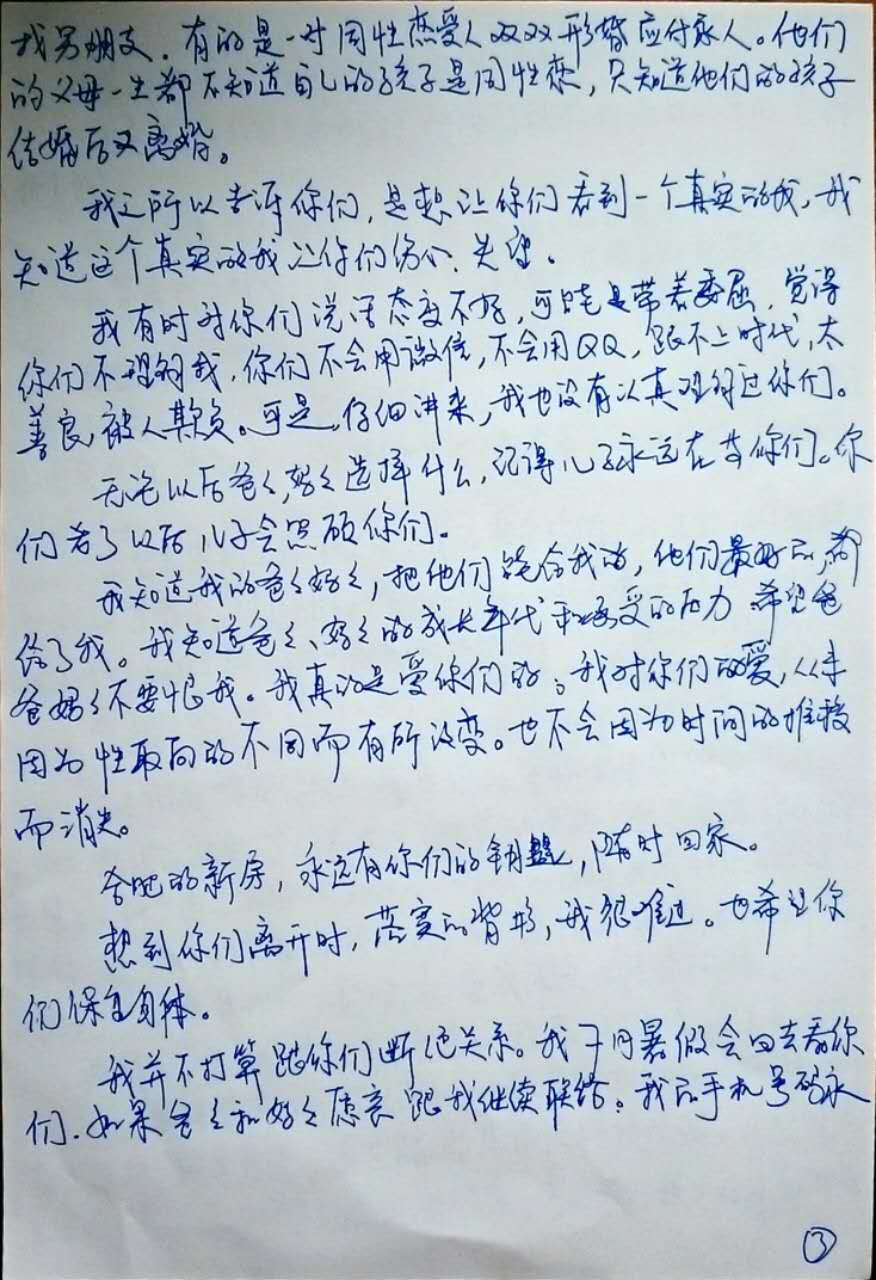 找男朋友。有的是一对同性恋爱人双双形婚应付家人。他们
的父母一生都不知道自己的孩子是同性恋，只知道他们的孩子
结婚后又离婚。
我之所以告诉你们，是想让你们看到一个真实的我，我
知道这个真实的我让你们伤心、失望。
我有时对你们说话态度不好，可能是带着委屈，觉得
你们不理解我，你们不会用微信，不会用QQ，跟不上时代，太
善良，被人欺负。可是，仔细讲来，我也没有认真理解过你们。
无论以后爸爸，妈妈选择什么，记得儿子永远在等你们。你
们老了以后儿子会照顾你们。
我知道我的爸爸妈妈，把他们能给我的，他们最好的，都
给了我。我知道爸爸、妈妈的成长年代和承受的压力 希望爸
爸妈妈不要恨我。我真的是爱你们的。我对你们的爱，从未
因为性取向的不同而有所改变。也不会因为时间的推移
而消失。
合肥的新房，永远有你们的钥匙，随时回家。
想到你们离开时，落寞的背影，我很难过。也希望你
们保重身体。
我并不打算跟你们断绝关系。我7月暑假会回去看你
们。如果爸爸和妈妈愿意跟我继续联络。我的手机号码永
③